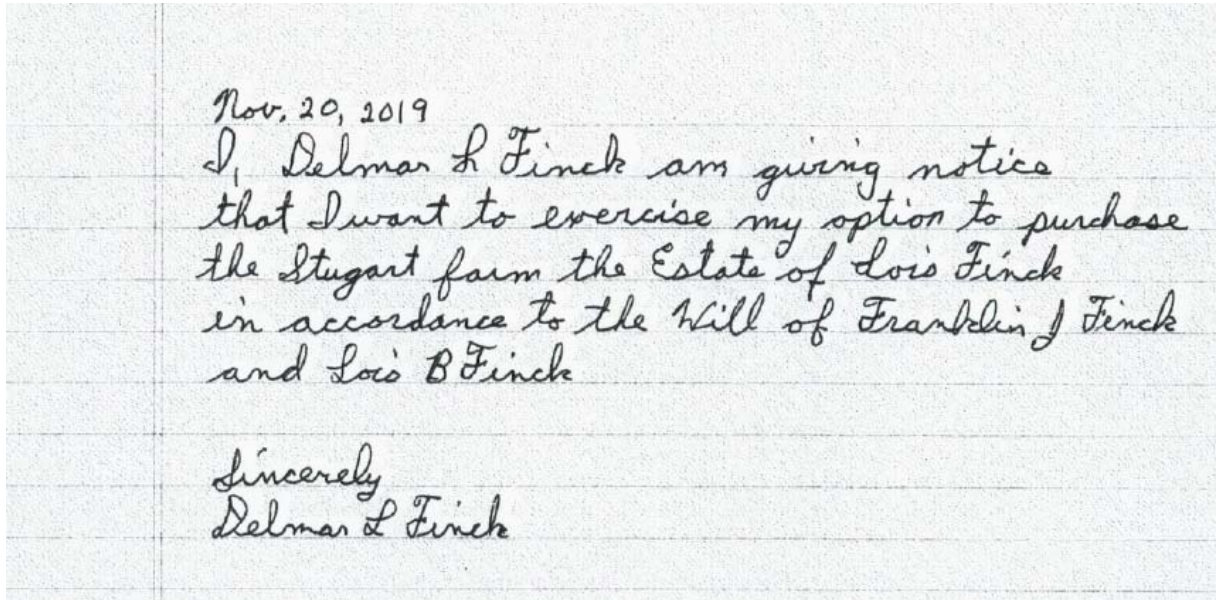 Nov. 20, 2019
I, Delmar L Finck am giving notice
that I want to exercise my option to purchase
the Stugart farm the Estate of Lois Finck
in accordance to the Will of Franklin J Finck
and Lois B Finck
Sincerely
Delmar L Finck